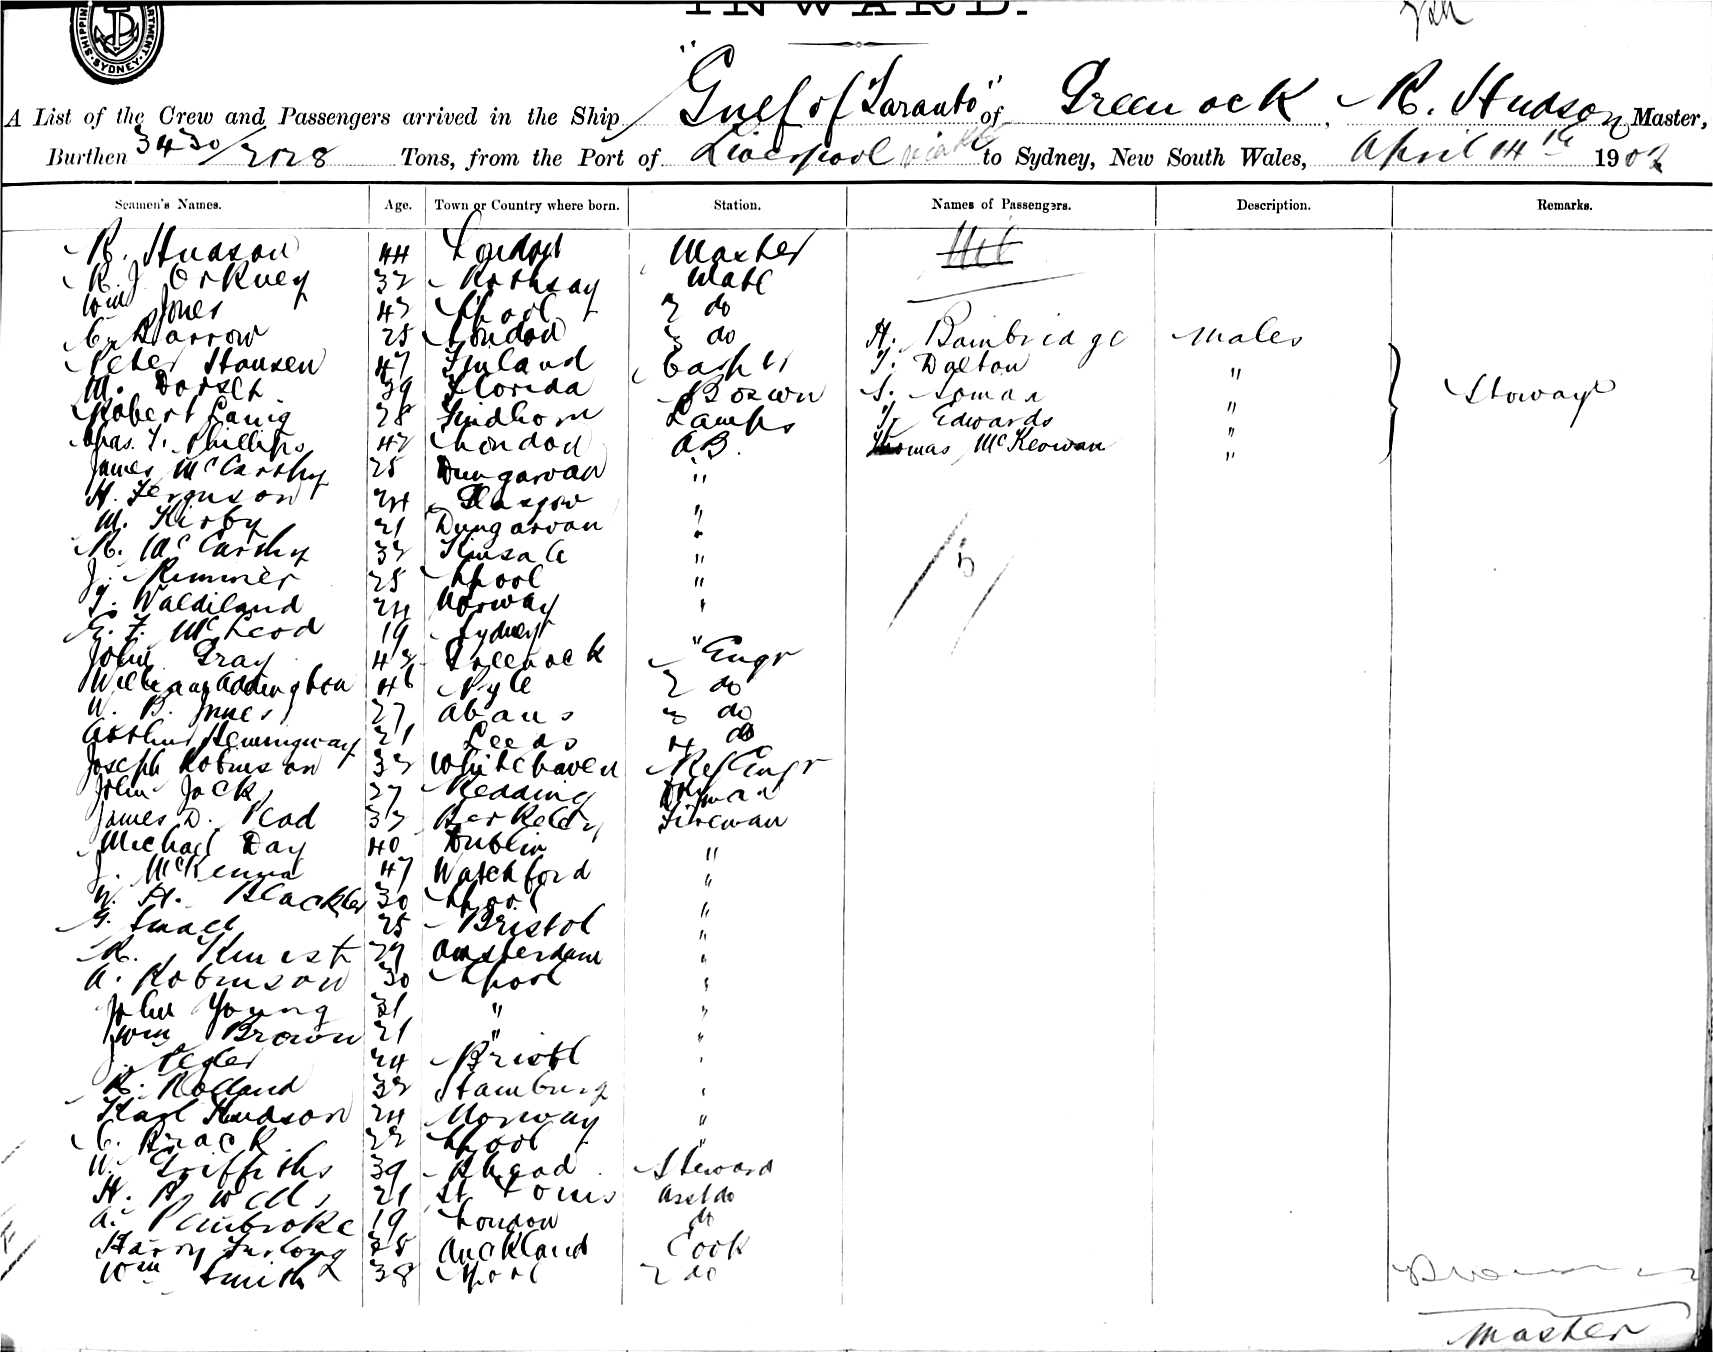 INWARD.
SHIPPING DEPARTMENT. SYDNEY.
A List of the Crew and Passengers arrived in the Ship "Gulf of Taranto" of Greenock, R. Hudson Master,
Burthen 3430/2128 Tons, from the Port of Liverpool to Sydney, New South Wales, April 14th 1902
Seamen's Names. Age. Town or Country where born. Station. Names of Passengers. Description. Remarks.
R. Hudson 44 London Master Nil
R. J. Orkney 32 Rothsay Mate
Wm Jones 43 Lpool 2 do
C. Barrow 25 London 3 do H. Bainbridge Males
Peter Hansen 47 Finland Carp T. Dalton "
M. Dorsch 39 Florida Boswn S. Soman Stoways
Robert Laing 28 Findhorn Lamps T. Edwards "
Chas. T. Phillips 42 London A.B. Thomas McKeowan "
James McCarthy 25 Dungarvan " "
H. Ferguson 24 Glasgow "
M. Kirby 21 Dungarvan "
R. McCarthy 32 Kinsale "
J. Rimmer 25 Lpool "
T. Waldiland 24 Norway "
G. F. McLeod 19 Sydney "
John Gray 43 Greenock Engr
William Addington 46 Ryle 2 do
W. B. Jones 27 3 do
Arthur Hemingway 21 Leeds 4 do
Joseph Robinson 33 Whitehaven Ref Engr
John Jack 27 Redding
James D. Read 33 Berkeley Fireman
Michael Day 40 Dublin "
J. McKenna 47 Watchford "
W. H. Blackler 30 Lpool "
G. Small 25 Bristol "
R. 29 Amsterdam "
A. Robinson 30 Lpool "
John Young 31 " "
Wm Brown 21 " "
J. Pegler 24 Bristl "
R. Rolland 32 Hamburg "
Karl Knudson 24 Norway "
C. Brack 22 Lpool "
W. Griffiths 39 Bhead Steward
H. B. Wells 21 St Louis Asst do
A. Pembroke 19 London do
Harry Furlong 35 Auckland Cook
Wm Smith 38 Lpool 2 do
Master